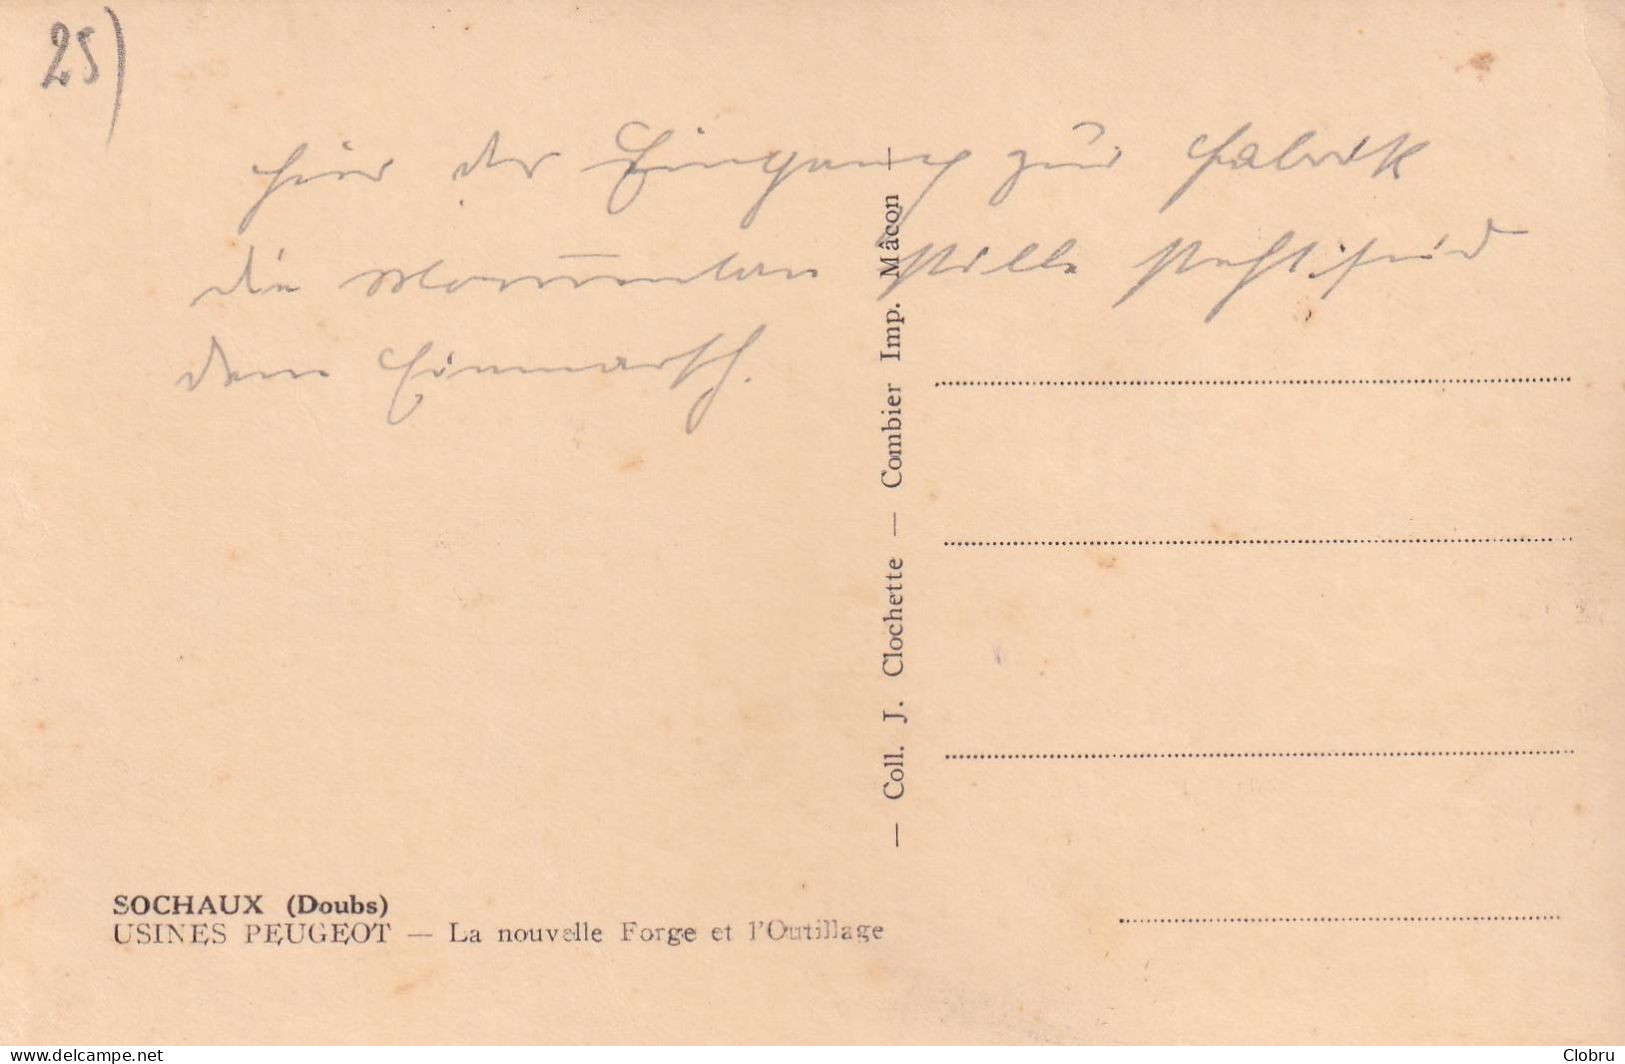 25)
hier der Eingang zur Fabrik
die momentan stille steht seid
dem Einmarsch.
— Coll. J. Clochette — Combier Imp. Mâcon —
SOCHAUX (Doubs)
USINES PEUGEOT — La nouvelle Forge et l'Outillage
Clobru
delcampe.net